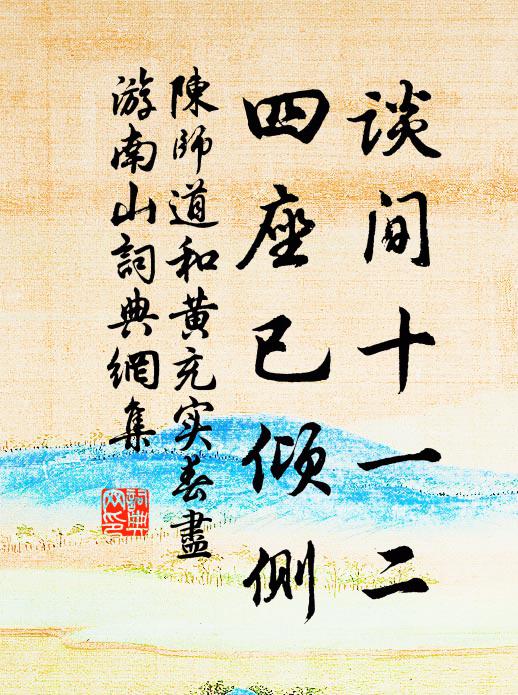 谈间十一二
四座已倾侧
陳師道和黄充实春盡
游南山詞典網集
詞典網